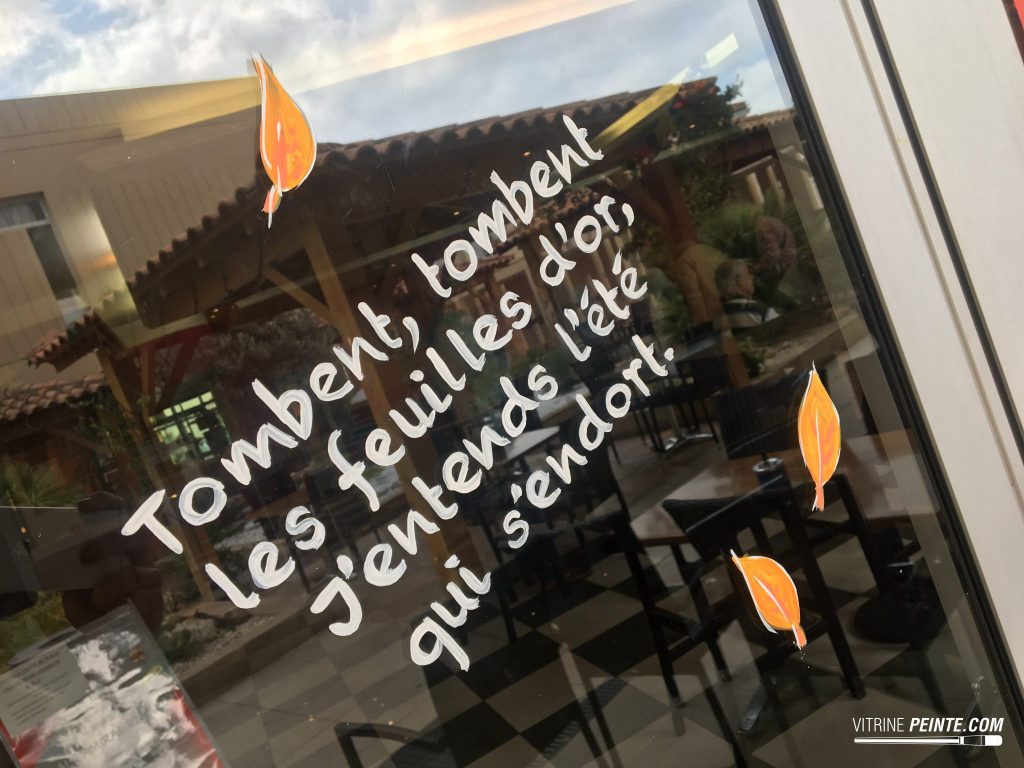 Tombent, tombent
les feuilles d'or,
j'entends l'été
qui s'endort.
VITRINE PEINTE.COM